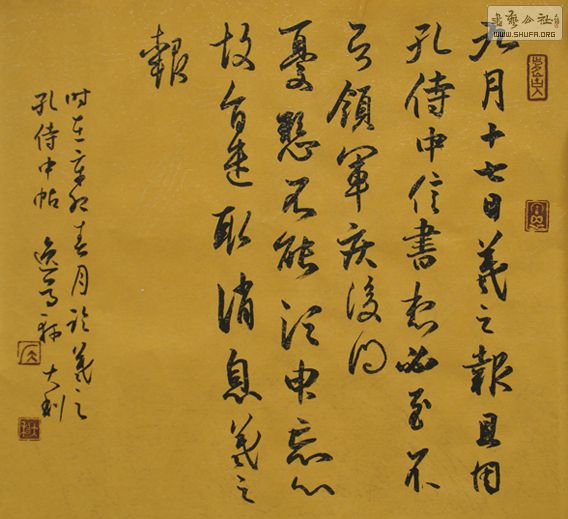 書藝公社
WWW.SHUFA.ORG
九月十七日羲之報且因
孔侍中信書想必至不
知領軍疾後問
憂懸不能須臾忘心
故旨遣取消息羲之
報
时在辛卯春月臨羲之
孔侍中帖